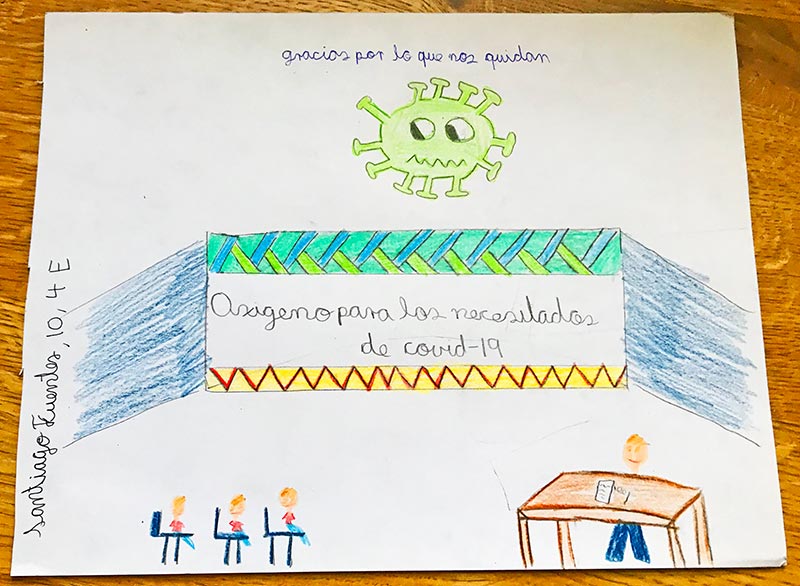 gracias por lo que nos quidan
Oxigeno para los necesitados
de covid-19
Santiago Fuentes, 10, 4 E